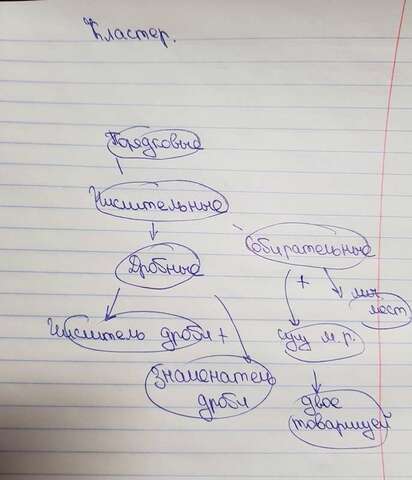 Кластер.
Порядковые
Числительные
Собирательные
Дробные
+
лич
мест
Числитель дроби +
сущ м.р.
Знаменатель
дроби
двое
товарищей